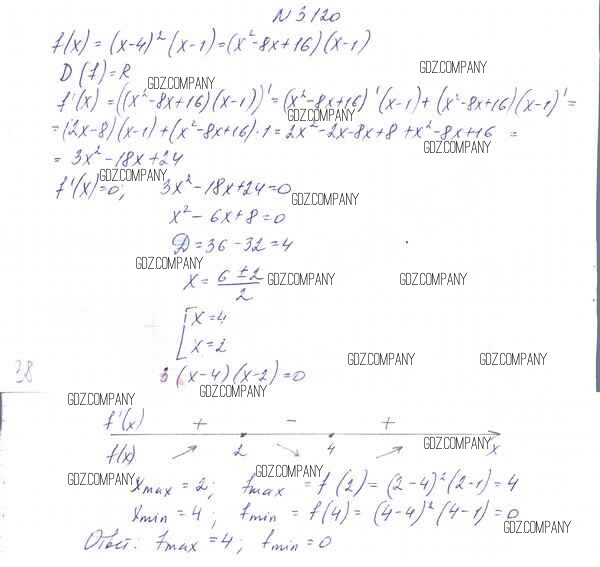 N 3120
f(x) = (x-4)²(x-1) = (x²-8x+16)(x-1)
GDZ.COMPANY
D(f)=R
GDZ.COMPANY
f'(x) = ((x²-8x+16)(x-1))' = (x²-8x+16)'(x-1)+(x²-8x+16)(x-1)' =
GDZ.COMPANY
= (2x-8)(x-1)+(x²-8x+16)·1 = 2x²-2x-8x+8+x²-8x+16 =
GDZ.COMPANY
= 3x²-18x+24
GDZ.COMPANY
f'(x)=0; 3x²-18x+24=0
GDZ.COMPANY
x²-6x+8=0
D=36-32=4
GDZ.COMPANY
x = (6±2)/2
GDZ.COMPANY GDZ.COMPANY
[x=4
x=2
GDZ.COMPANY GDZ.COMPANY
38
3(x-4)(x-2)=0
GDZ.COMPANY
GDZ.COMPANY
f'(x) + - +
GDZ.COMPANY
f(x) ↗ 2 ↘ 4 ↗ x
GDZ.COMPANY
GDZ.COMPANY
xmax = 2; fmax = f(2) = (2-4)²(2-1) = 4
xmin = 4; fmin = f(4) = (4-4)²(4-1) = 0
GDZ.COMPANY
Ответ: fmax = 4; fmin = 0